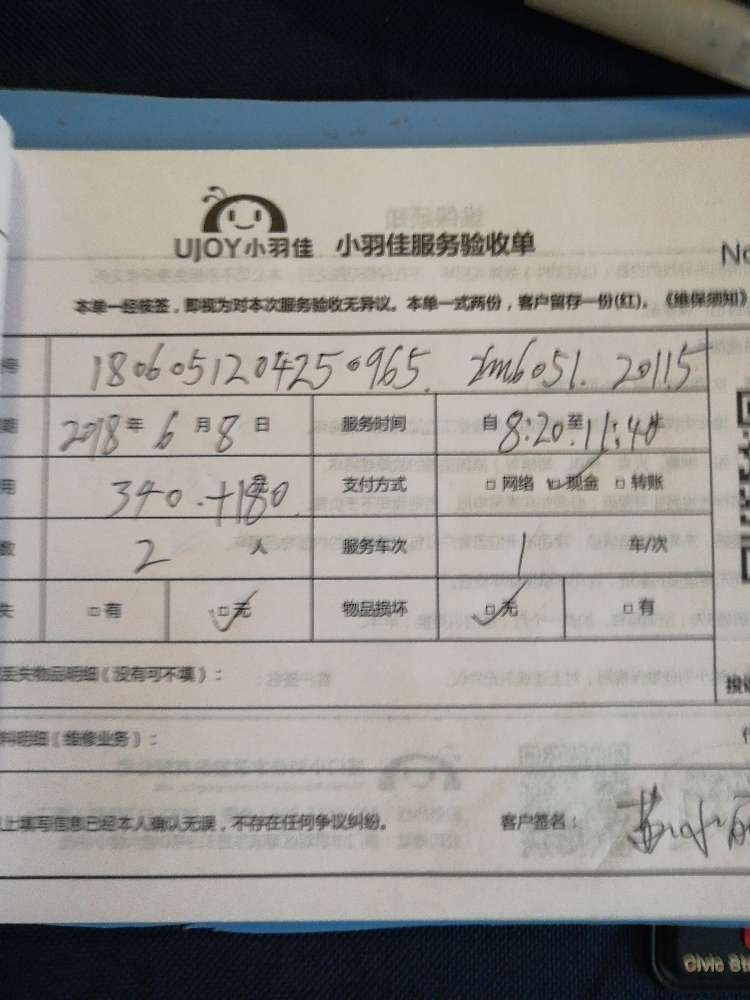 UJOY小羽佳 小羽佳服务验收单
No
本单一经核签，即视为对本次服务验收无异议。本单一式两份，客户留存一份(红)。《维保须知》
号 1806051204250965.
期 2018年 6月 8日 服务时间 自8:20至11:40止
用 340.+180. 支付方式 □网络 ☑现金 □转账
数 2 人 服务车次 1 车/次
失 □有 ☑无 物品损坏 ☑无 □有
丢失物品明细（没有可不填）：
料明细（维修业务）：
以上填写信息已经本人确认无误，不存在任何争议纠纷。 客户签名：
Civic